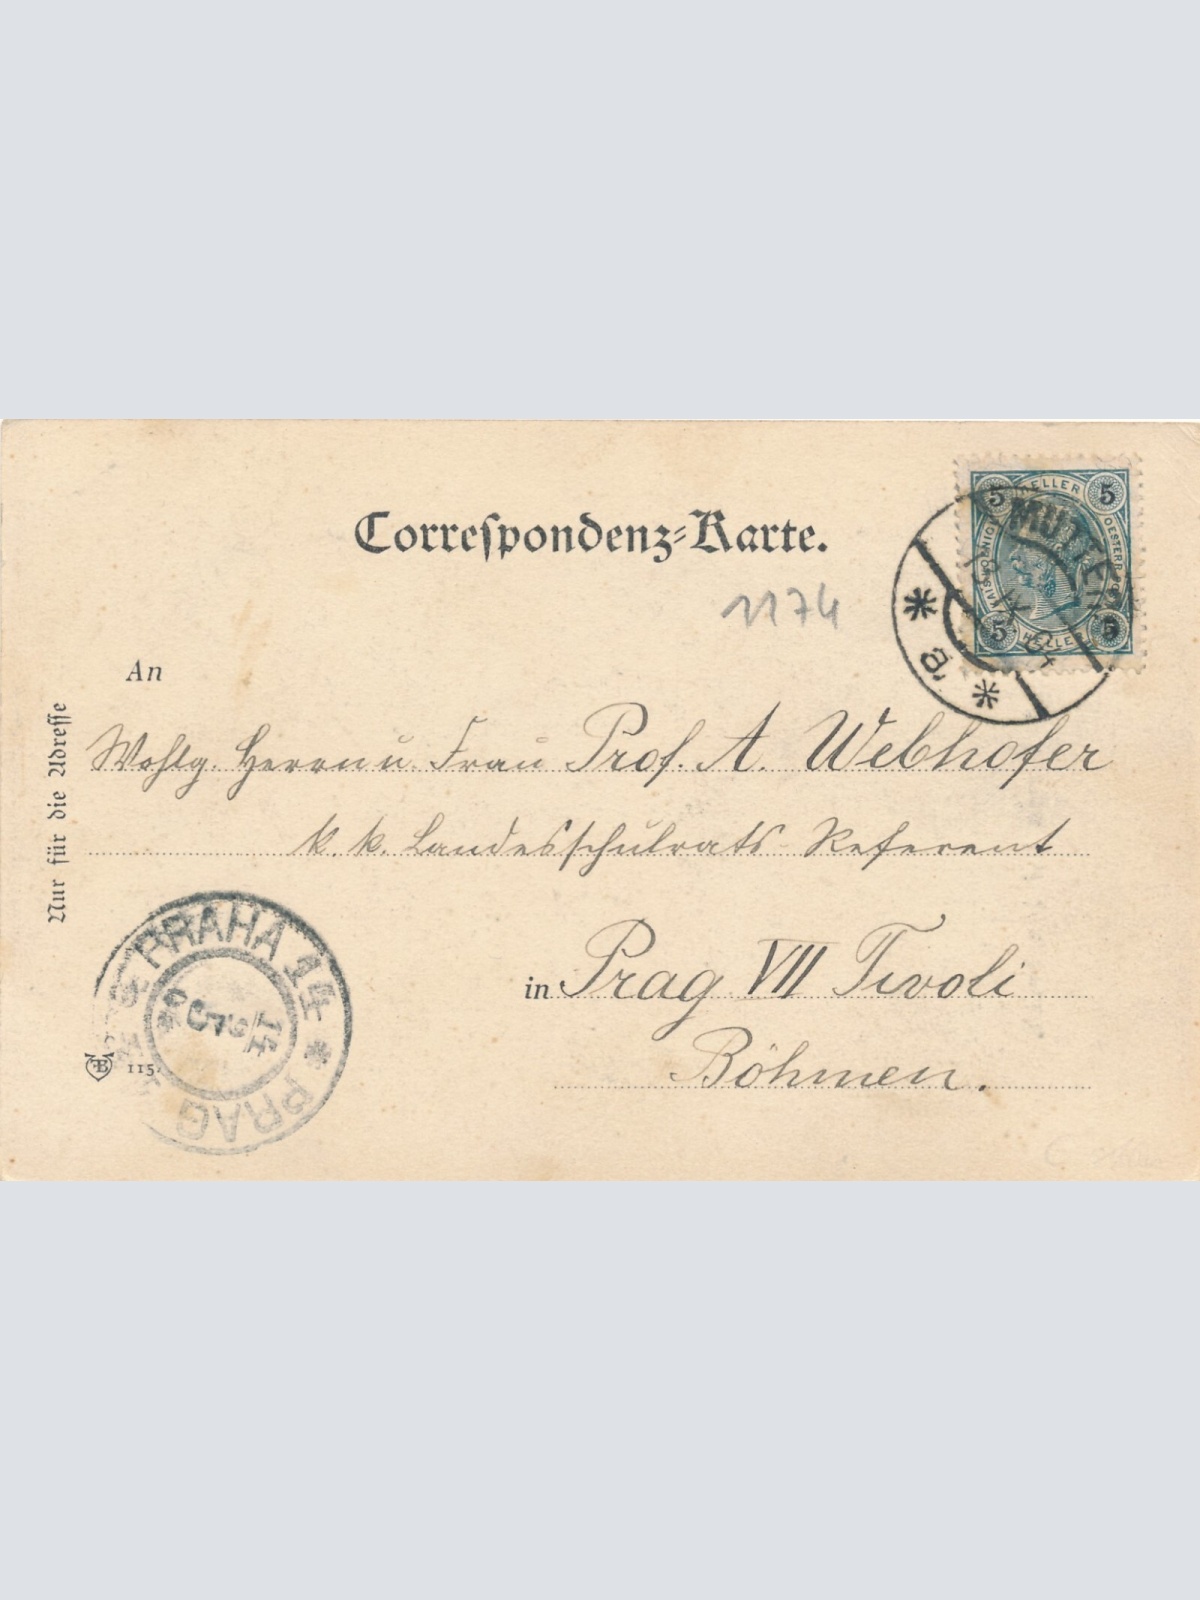 Correspondenz-Karte.
1174
5 HELLER 5
KAIS. KÖNIGL. OESTERR.
5 HELLER 5
MUTTERS
* a *
An
Nur für die Adresse
Wohlg. Herrn u. Frau Prof. A. Webhofer
k. k. Landesschulrats-Referent
in Prag VII Tivoli
Böhmen.
PRAHA 14
* PRAG
115